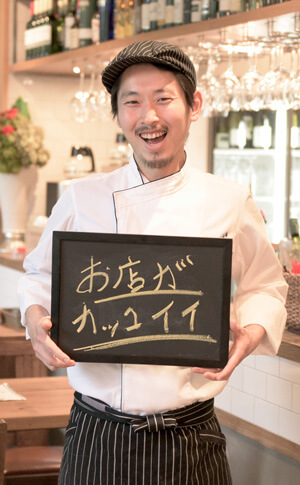 お店が
カッコイイ